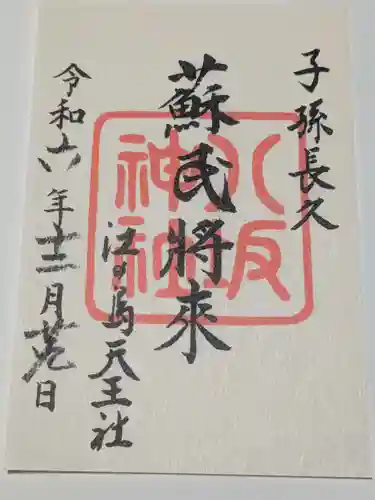 子孫長久
蘇民將來
八坂神社
江の島天王社
令和六年十二月
日